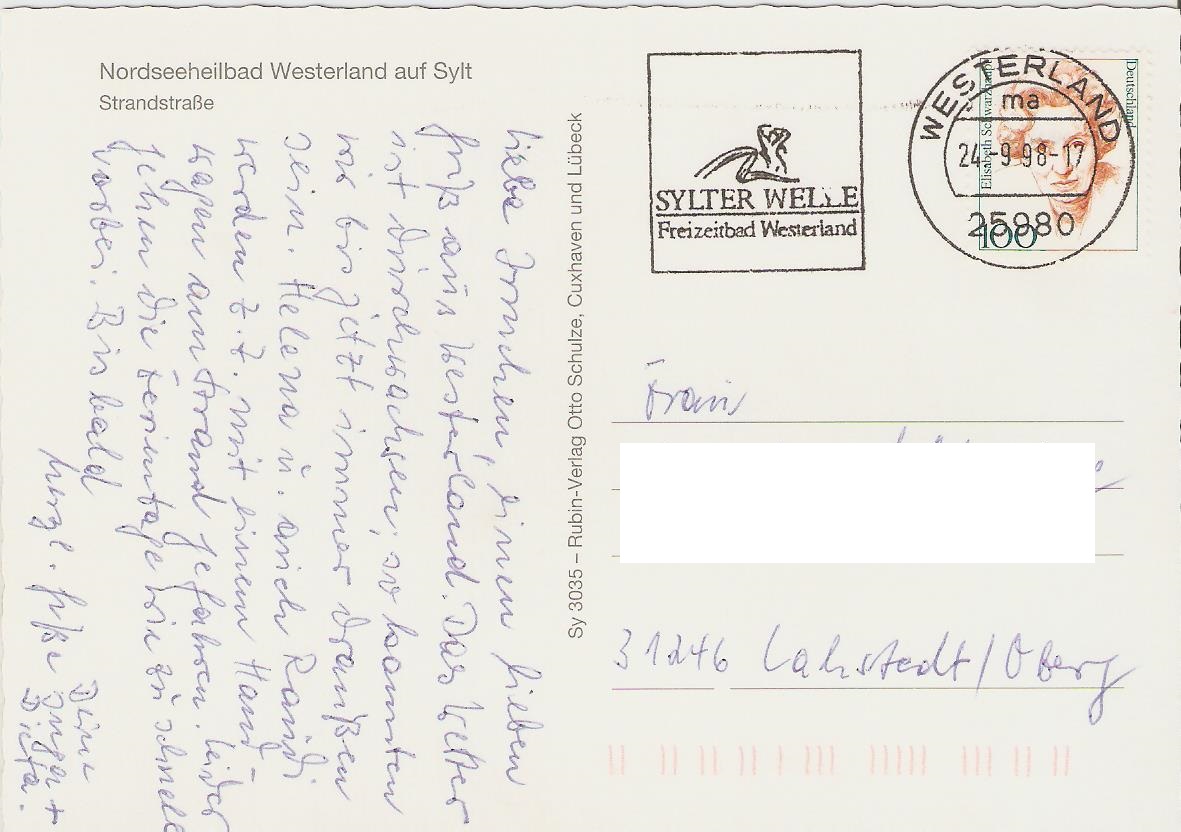 Nordseeheilbad Westerland auf Sylt
Strandstraße
liebe Irmchen, einen lieben
Gruß aus Westerland. Das Wetter
ist durchwachsen, so konnten
wir bis jetzt immer draußen
sein. Helena u. auch Randi
werden z. Z. mit einem Hand
wagen am Strand gefahren. leider
gehen die Ferientage wie zu schnell
vorbei. Bis bald
herzl. Grüße Deine
Inga +
Dieta.
Sy 3035 – Rubin-Verlag Otto Schulze, Cuxhaven und Lübeck
SYLTER WELLE
Freizeitbad Westerland
WESTERLAND
ma
24.-9.98-17
25980
Deutschland
Elisabeth Schwarzhaupt
100
Frau
31246 Lahstedt/Oberg